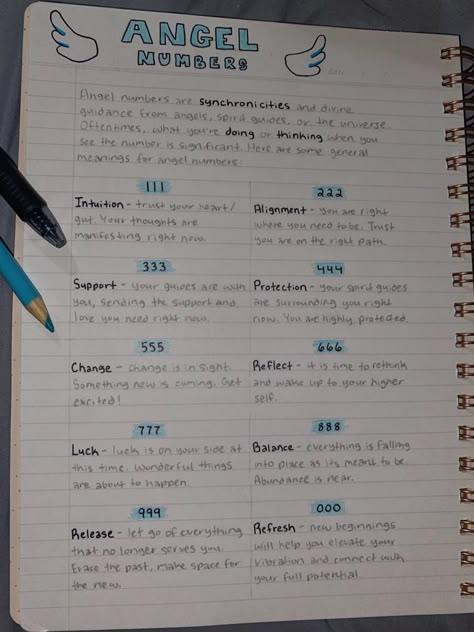 ANGEL
NUMBERS
Angel numbers are synchronicities and divine
guidance from angels, spirit guides, or the universe.
Oftentimes, what you're doing or thinking when you
see the number is significant. Here are some general
meanings for angel numbers:
111
Intuition - trust your heart/
gut. Your thoughts are
manifesting right now.
222
Alignment - you are right
where you need to be. Trust
you are on the right path.
333
Support - your guides are with
you, sending the support and
love you need right now.
444
Protection - your spirit guides
are surrounding you right
now. You are highly protected.
555
Change - change is in sight.
Something new is coming. Get
excited!
666
Reflect - it is time to rethink
and wake up to your higher
self.
777
Luck - luck is on your side at
this time. Wonderful things
are about to happen.
888
Balance - everything is falling
into place as its meant to be.
Abundance is near.
999
Release - let go of everything
that no longer serves you.
Erase the past, make space for
the new.
000
Refresh - new beginnings
will help you elevate your
vibration and connect with
your full potential.